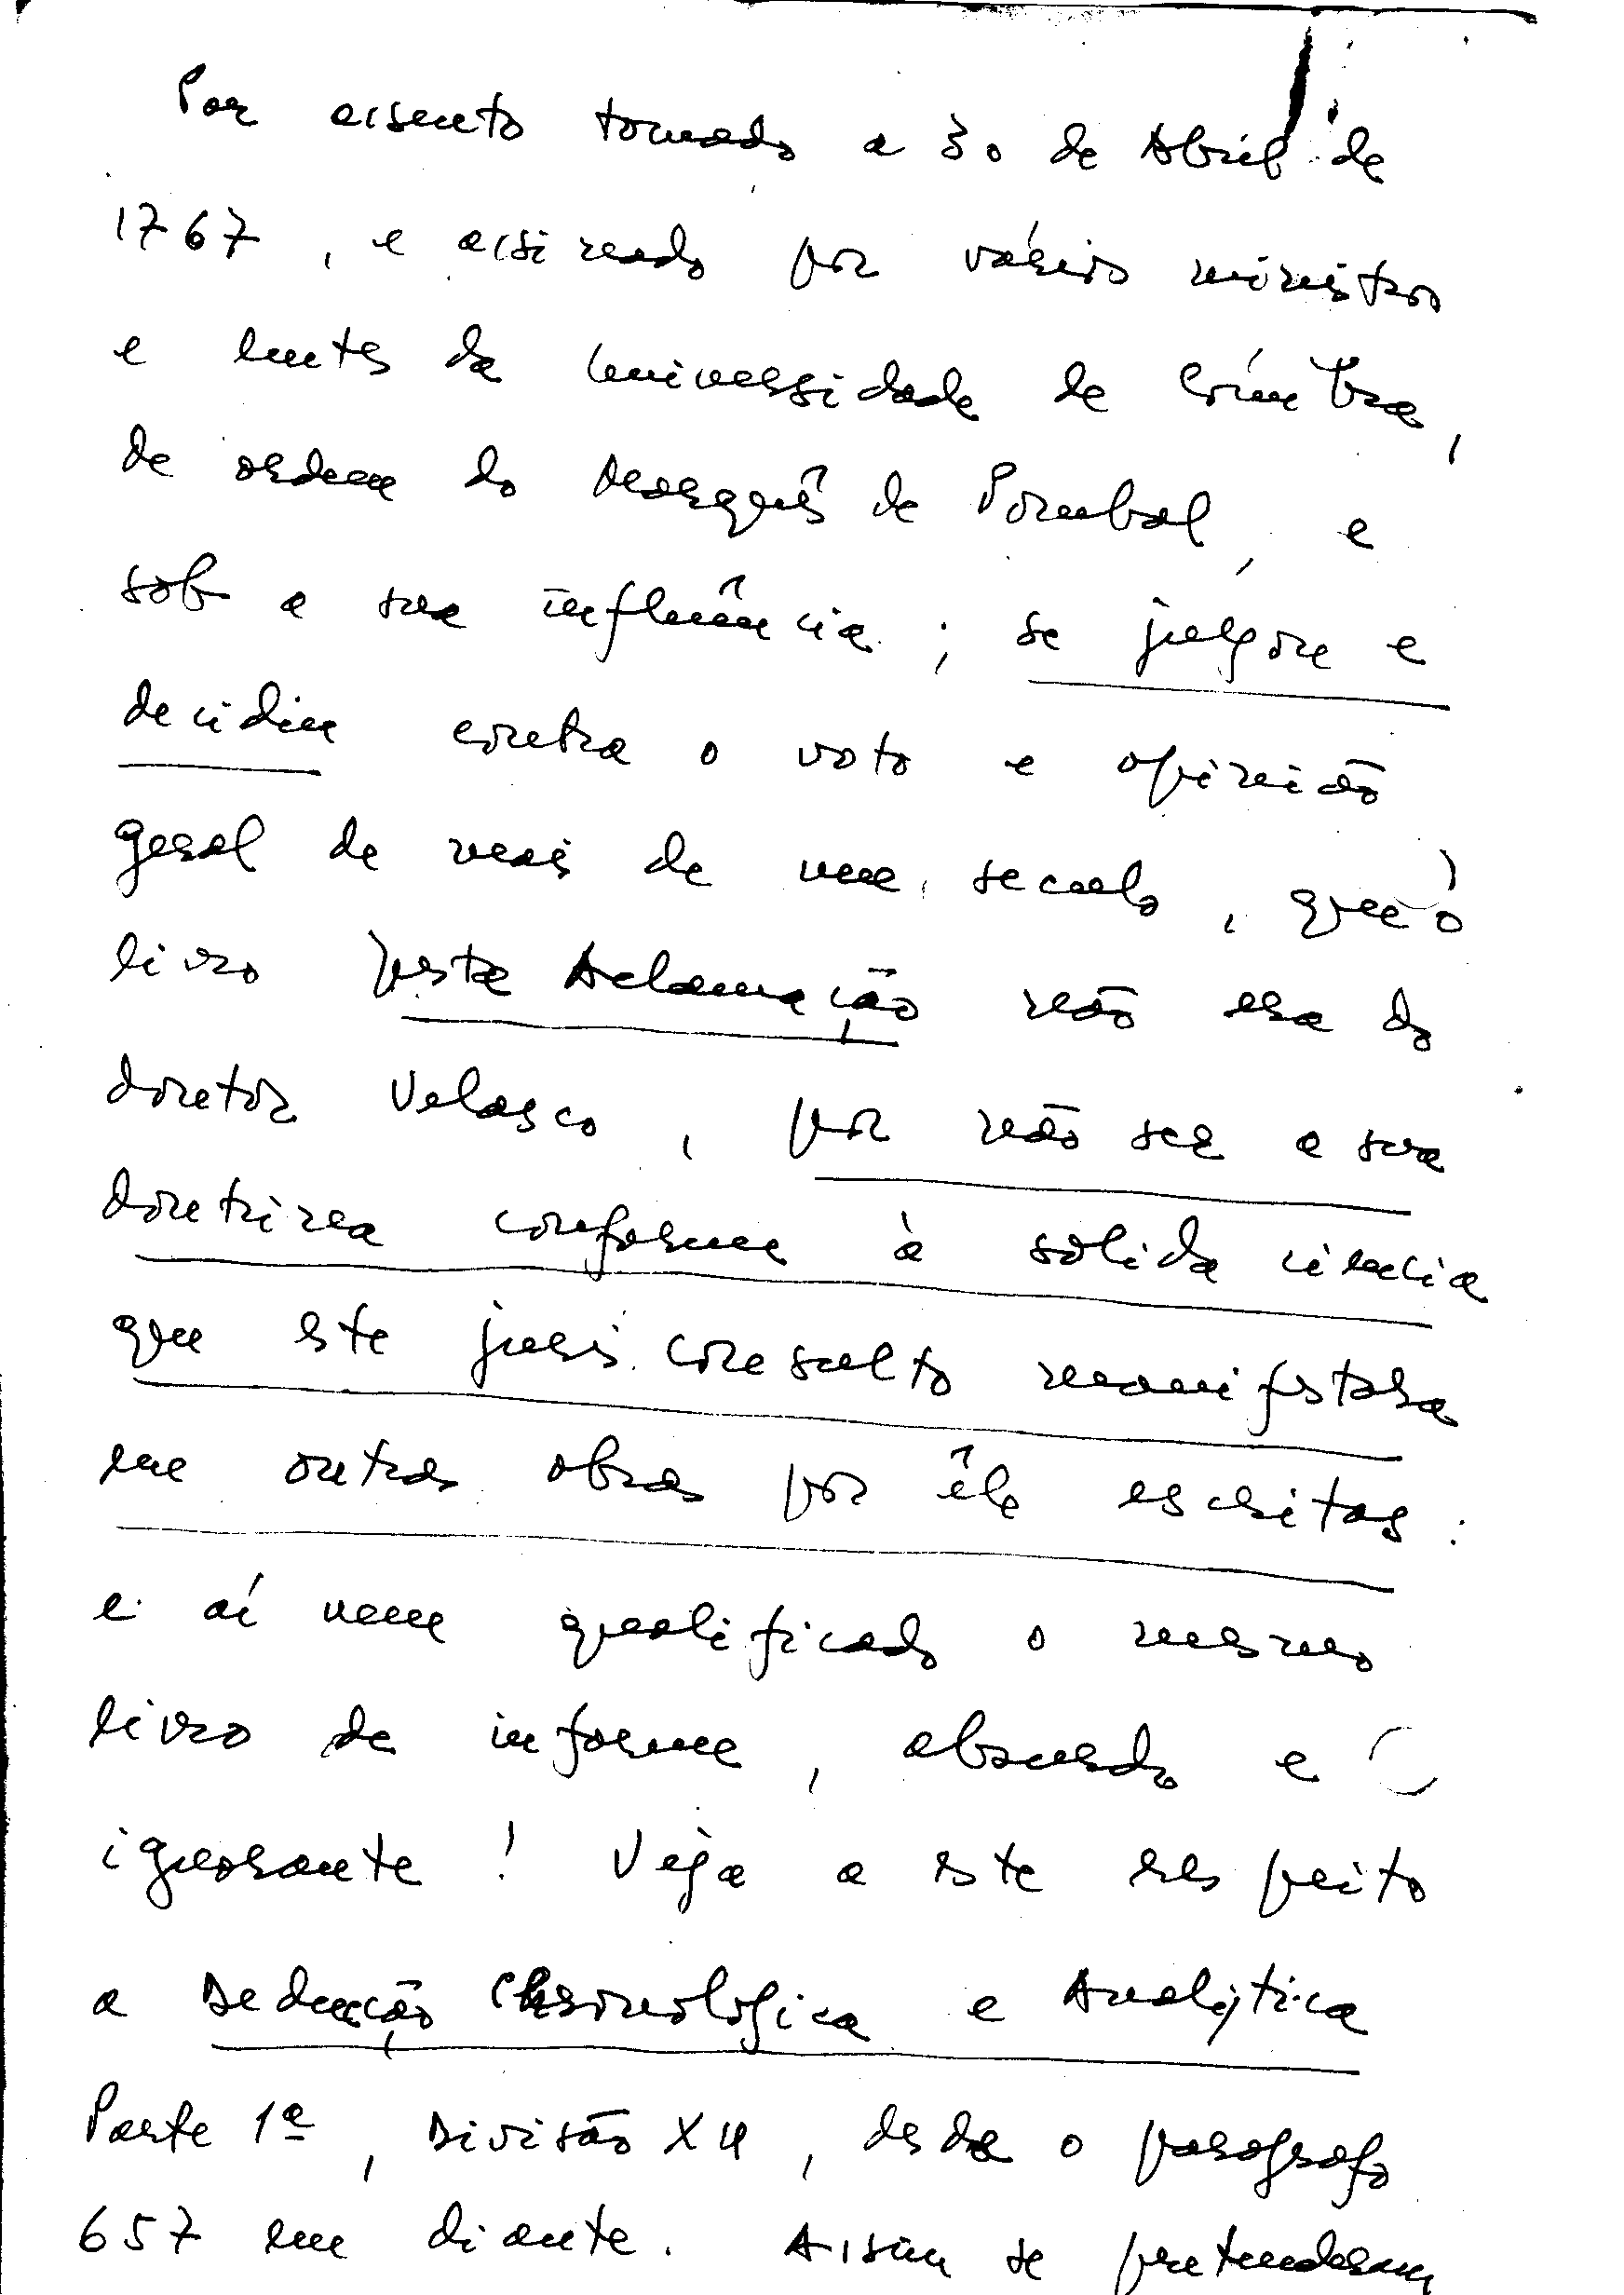 Por assento tomado a 30 de Abril de
1767, e assinado por vários ministros
e lentes da Universidade de Coimbra,
de ordem do Marquês de Pombal, e
sob a sua influência; se julgou e
decidiu contra o voto e opinião
geral de mais de um seculo, que o
livro Justa Aclamação não era do
doutor Velasco, por não ser a sua
doutrina conforme à solida ciencia
que este jurisconsulto manifestara
em outras obras por êle escritas:
e aí vem qualificado o mesmo
livro de informe, absurdo e
ignorante! Veja a este respeito
a Dedução Chronologica e Analytica
Parte 1ª, Divisão XII, desde o paragrafo
657 em diante. Assim se pretenderam